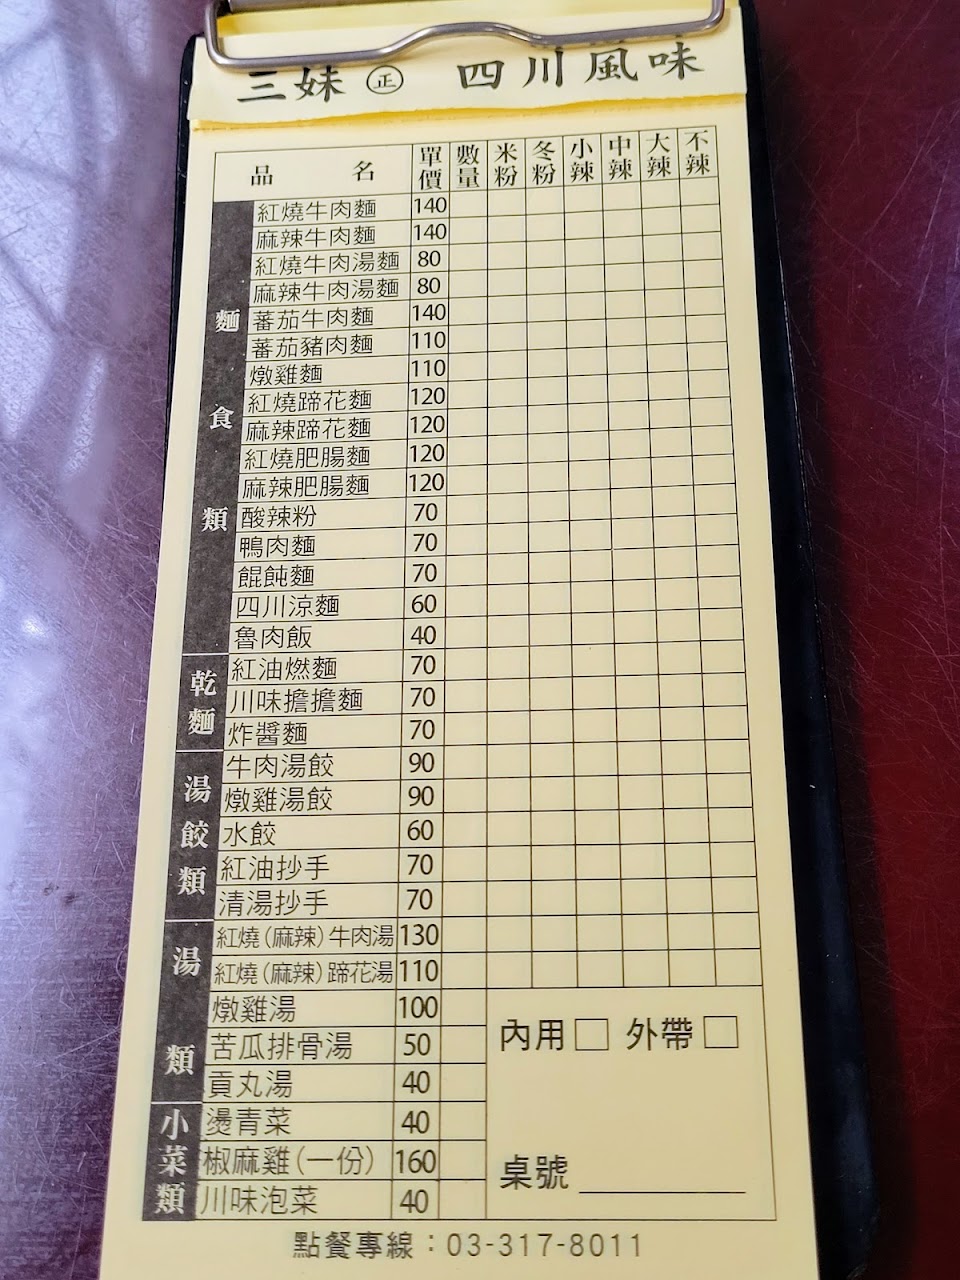 三妹 ㊣ 四川風味
品名 單價 數量 米粉 冬粉 小辣 中辣 大辣 不辣
麵食類
紅燒牛肉麵 140
麻辣牛肉麵 140
紅燒牛肉湯麵 80
麻辣牛肉湯麵 80
蕃茄牛肉麵 140
蕃茄豬肉麵 110
燉雞麵 110
紅燒蹄花麵 120
麻辣蹄花麵 120
紅燒肥腸麵 120
麻辣肥腸麵 120
酸辣粉 70
鴨肉麵 70
餛飩麵 70
四川涼麵 60
魯肉飯 40
乾麵
紅油燃麵 70
川味擔擔麵 70
炸醬麵 70
湯餃類
牛肉湯餃 90
燉雞湯餃 90
水餃 60
紅油抄手 70
清湯抄手 70
湯類
紅燒(麻辣)牛肉湯 130
紅燒(麻辣)蹄花湯 110
燉雞湯 100
苦瓜排骨湯 50
貢丸湯 40
小菜類
燙青菜 40
椒麻雞(一份) 160
川味泡菜 40
內用□ 外帶□
桌號
點餐專線：03-317-8011